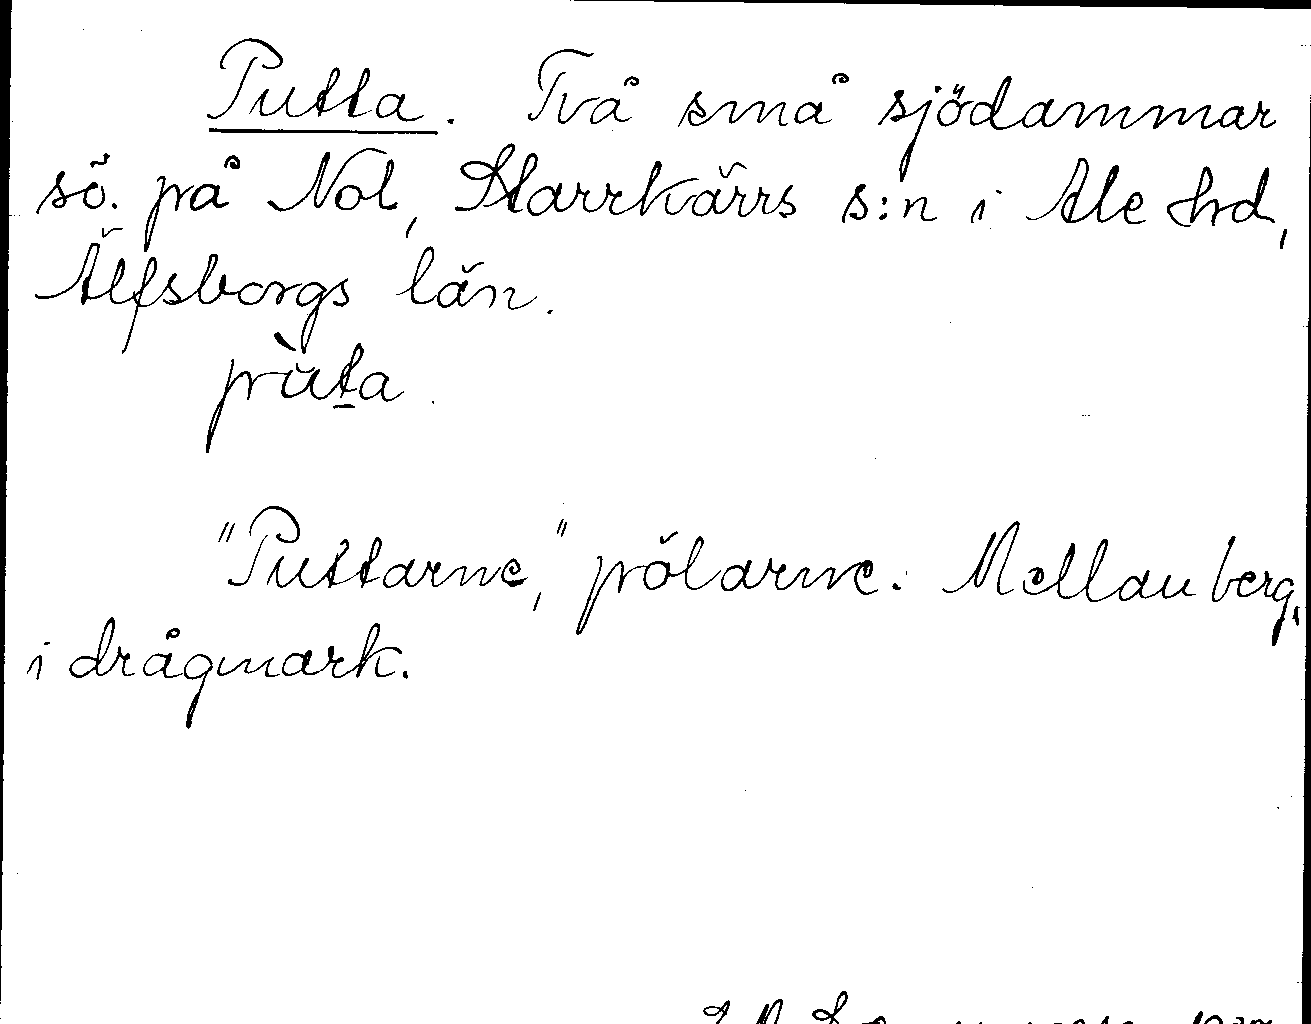 Putta. Två små sjödammar
sö. på Nol, Starrkärrs s:n i Ale hrd,
Älfsborgs län.
pùta
"Puttarne," pölarne. Mellau berg,
i drågmark.